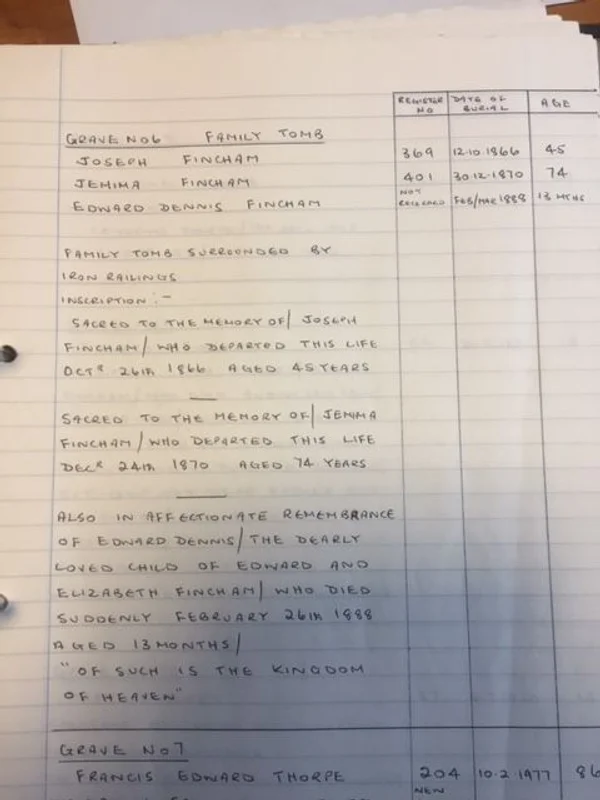 REGISTER NO DATE OF BURIAL AGE
GRAVE No 6 FAMILY TOMB
JOSEPH FINCHAM 369 12.10.1866 45
JEMIMA FINCHAM 401 30.12.1870 74
EDWARD DENNIS FINCHAM NOT RECORDED FEB/MAR 1888 13 MTHS
FAMILY TOMB SURROUNDED BY
IRON RAILINGS
INSCRIPTION :-
SACRED TO THE MEMORY OF/ JOSEPH
FINCHAM/ WHO DEPARTED THIS LIFE
OCTR 26th 1866 AGED 45 YEARS
SACRED TO THE MEMORY OF/ JEMIMA
FINCHAM/ WHO DEPARTED THIS LIFE
DECR 24th 1870 AGED 74 YEARS
ALSO IN AFFECTIONATE REMEMBRANCE
OF EDWARD DENNIS/ THE DEARLY
LOVED CHILD OF EDWARD AND
ELIZABETH FINCHAM/ WHO DIED
SUDDENLY FEBRUARY 26th 1888
AGED 13 MONTHS/
"OF SUCH IS THE KINGDOM
OF HEAVEN"
GRAVE No 7
FRANCIS EDWARD THORPE 204 10.2.1977 86
NEW